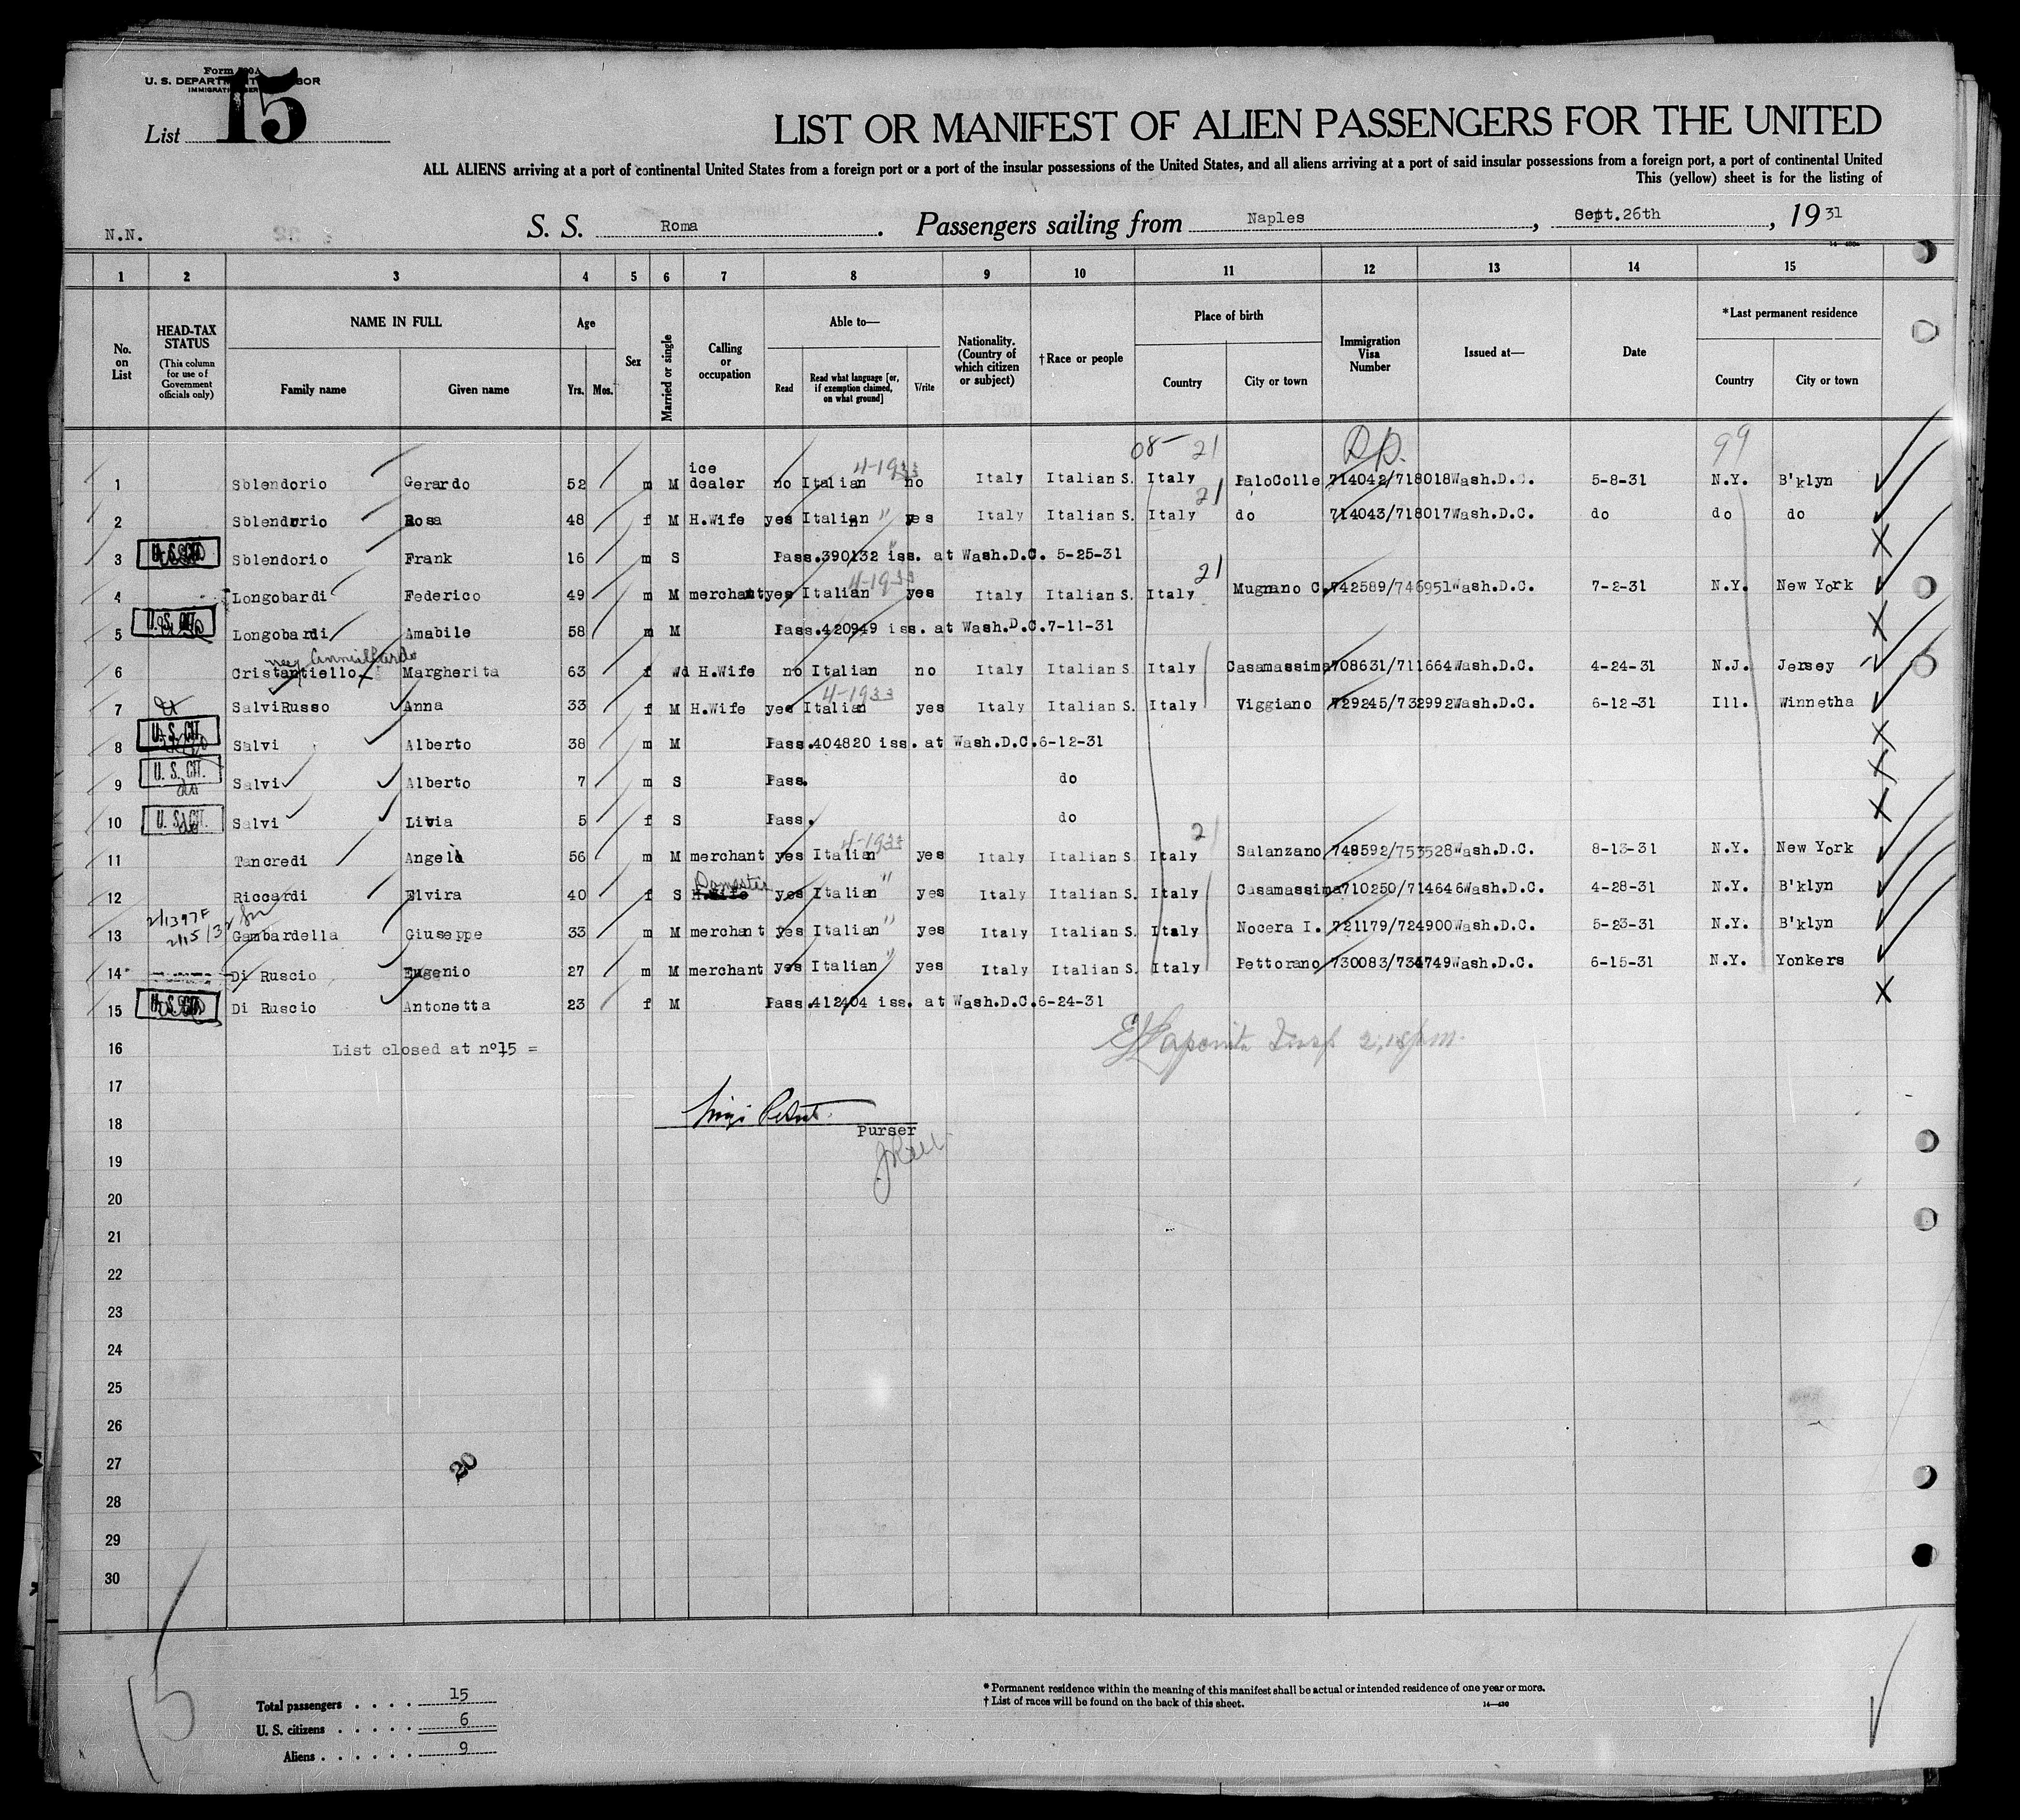 Form 500A
U. S. DEPARTMENT OF LABOR
IMMIGRATION SERVICE
List 15
LIST OR MANIFEST OF ALIEN PASSENGERS FOR THE UNITED
ALL ALIENS arriving at a port of continental United States from a foreign port or a port of the insular possessions of the United States, and all aliens arriving at a port of said insular possessions from a foreign port, a port of continental United
This (yellow) sheet is for the listing of
N.N. S. S. Roma. Passengers sailing from Naples, Sept.26th, 1931
1 2 3 4 5 6 7 8 9 10 11 12 13 14 15
No. on List
HEAD-TAX STATUS (This column for use of Government officials only)
NAME IN FULL Family name Given name
Age Yrs. Mos.
Sex
Married or single
Calling or occupation
Able to— Read Read what language [or, if exemption claimed, on what ground] Write
Nationality. (Country of which citizen or subject)
†Race or people
Place of birth Country City or town
Immigration Visa Number
Issued at—
Date
*Last permanent residence Country City or town
08- 21 99
1 Sblendorio Gerardo 52 m M ice dealer no Italian 4-1933 no Italy Italian S. Italy PaloColle 714042/718018 Wash.D.C. 5-8-31 N.Y. B'klyn
21
2 Sblendorio Rosa 48 f M H.Wife yes Italian " yes Italy Italian S. Italy do 714043/718017 Wash.D.C. do do do
3 U. S. CIT. Sblendorio Frank 16 m S Pass.390132 iss. at Wash.D.C. 5-25-31
21
4 Longobardi Federico 49 m M merchant yes Italian 4-1933 yes Italy Italian S. Italy Mugnano C. 742589/746951 Wash.D.C. 7-2-31 N.Y. New York
5 U. S. CIT. Longobardi Amabile 58 m M Pass.420949 iss. at Wash.D.C.7-11-31
6 Cristantiello Margherita 63 f Wd H.Wife no Italian no Italy Italian S. Italy Casamassima 708631/711664 Wash.D.C. 4-24-31 N.J. Jersey
7 SalviRusso Anna 33 f M H.Wife yes Italian 4-1933 yes Italy Italian S. Italy Viggiano 729245/732992 Wash.D.C. 6-12-31 Ill. Winnetha
8 U. S. CIT. Salvi Alberto 38 m M Pass.404820 iss. at Wash.D.C.6-12-31
9 U. S. CIT. Salvi Alberto 7 m S Pass. do
10 U. S. CIT. Salvi Livia 5 f S Pass. do
21
11 Tancredi Angelo 56 m M merchant yes Italian 4-1933 yes Italy Italian S. Italy Salanzano 748592/753528 Wash.D.C. 8-13-31 N.Y. New York
12 Riccardi Elvira 40 f S H.Wife Domestic yes Italian " yes Italy Italian S. Italy Casamassima 710250/714646 Wash.D.C. 4-28-31 N.Y. B'klyn
2/1397F
2/15/32
13 Gambardella Giuseppe 33 m M merchant yes Italian " yes Italy Italian S. Italy Nocera I. 721179/724900 Wash.D.C. 5-23-31 N.Y. B'klyn
14 Di Ruscio Eugenio 27 m M merchant yes Italian " yes Italy Italian S. Italy Pettorano 730083/734749 Wash.D.C. 6-15-31 N.Y. Yonkers
15 U. S. CIT. Di Ruscio Antonetta 23 f M Pass.412404 iss. at Wash.D.C.6-24-31
16 List closed at n°15 =
17
18
Purser
19
20
21
22
23
24
25
26
27
20
28
29
30
15
Total passengers . . . . 15
U. S. citizens . . . . . 6
Aliens . . . . . . 9
* Permanent residence within the meaning of this manifest shall be actual or intended residence of one year or more.
† List of races will be found on the back of this sheet.
14—430